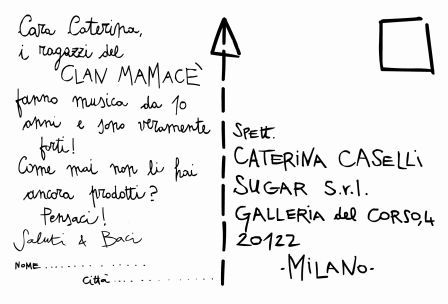 Cara Caterina,
i ragazzi del
CLAN MAMACÈ
fanno musica da 10
anni e sono veramente
forti!
Come mai non li hai
ancora prodotti?
Pensaci!
Saluti & Baci
NOME................
Città................
Spett.
CATERINA CASELLI
SUGAR S.r.l.
GALLERIA del CORSO,4
20122
-MILANO-